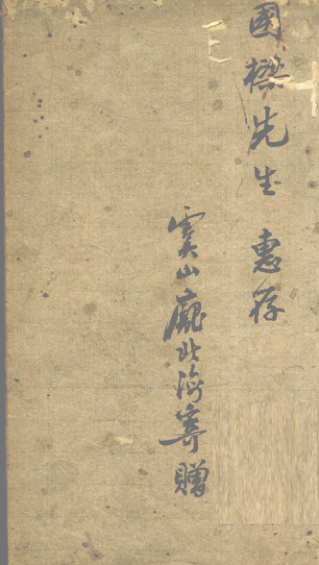 國樑先生 惠存
虞山龐北海寄贈